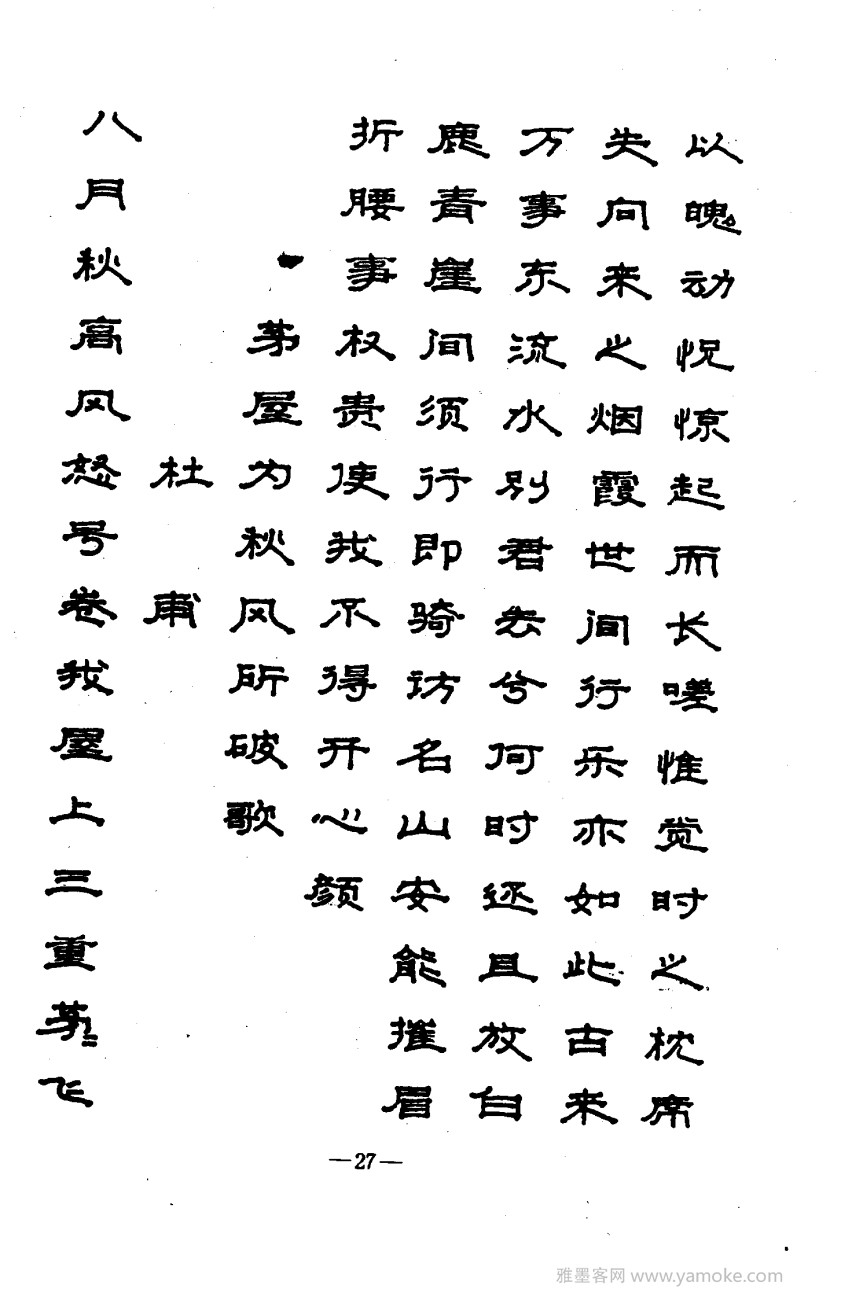 以魄动怳惊起而长嗟惟觉时之枕席
失向来之烟霞世间行乐亦如此古来
万事东流水别君去兮何时还且放白
鹿青崖间须行即骑访名山安能摧眉
折腰事权贵使我不得开心颜
茅屋为秋风所破歌
杜甫
八月秋高风怒号卷我屋上三重茅〻飞
—27—
雅墨客网 www.yamoke.com